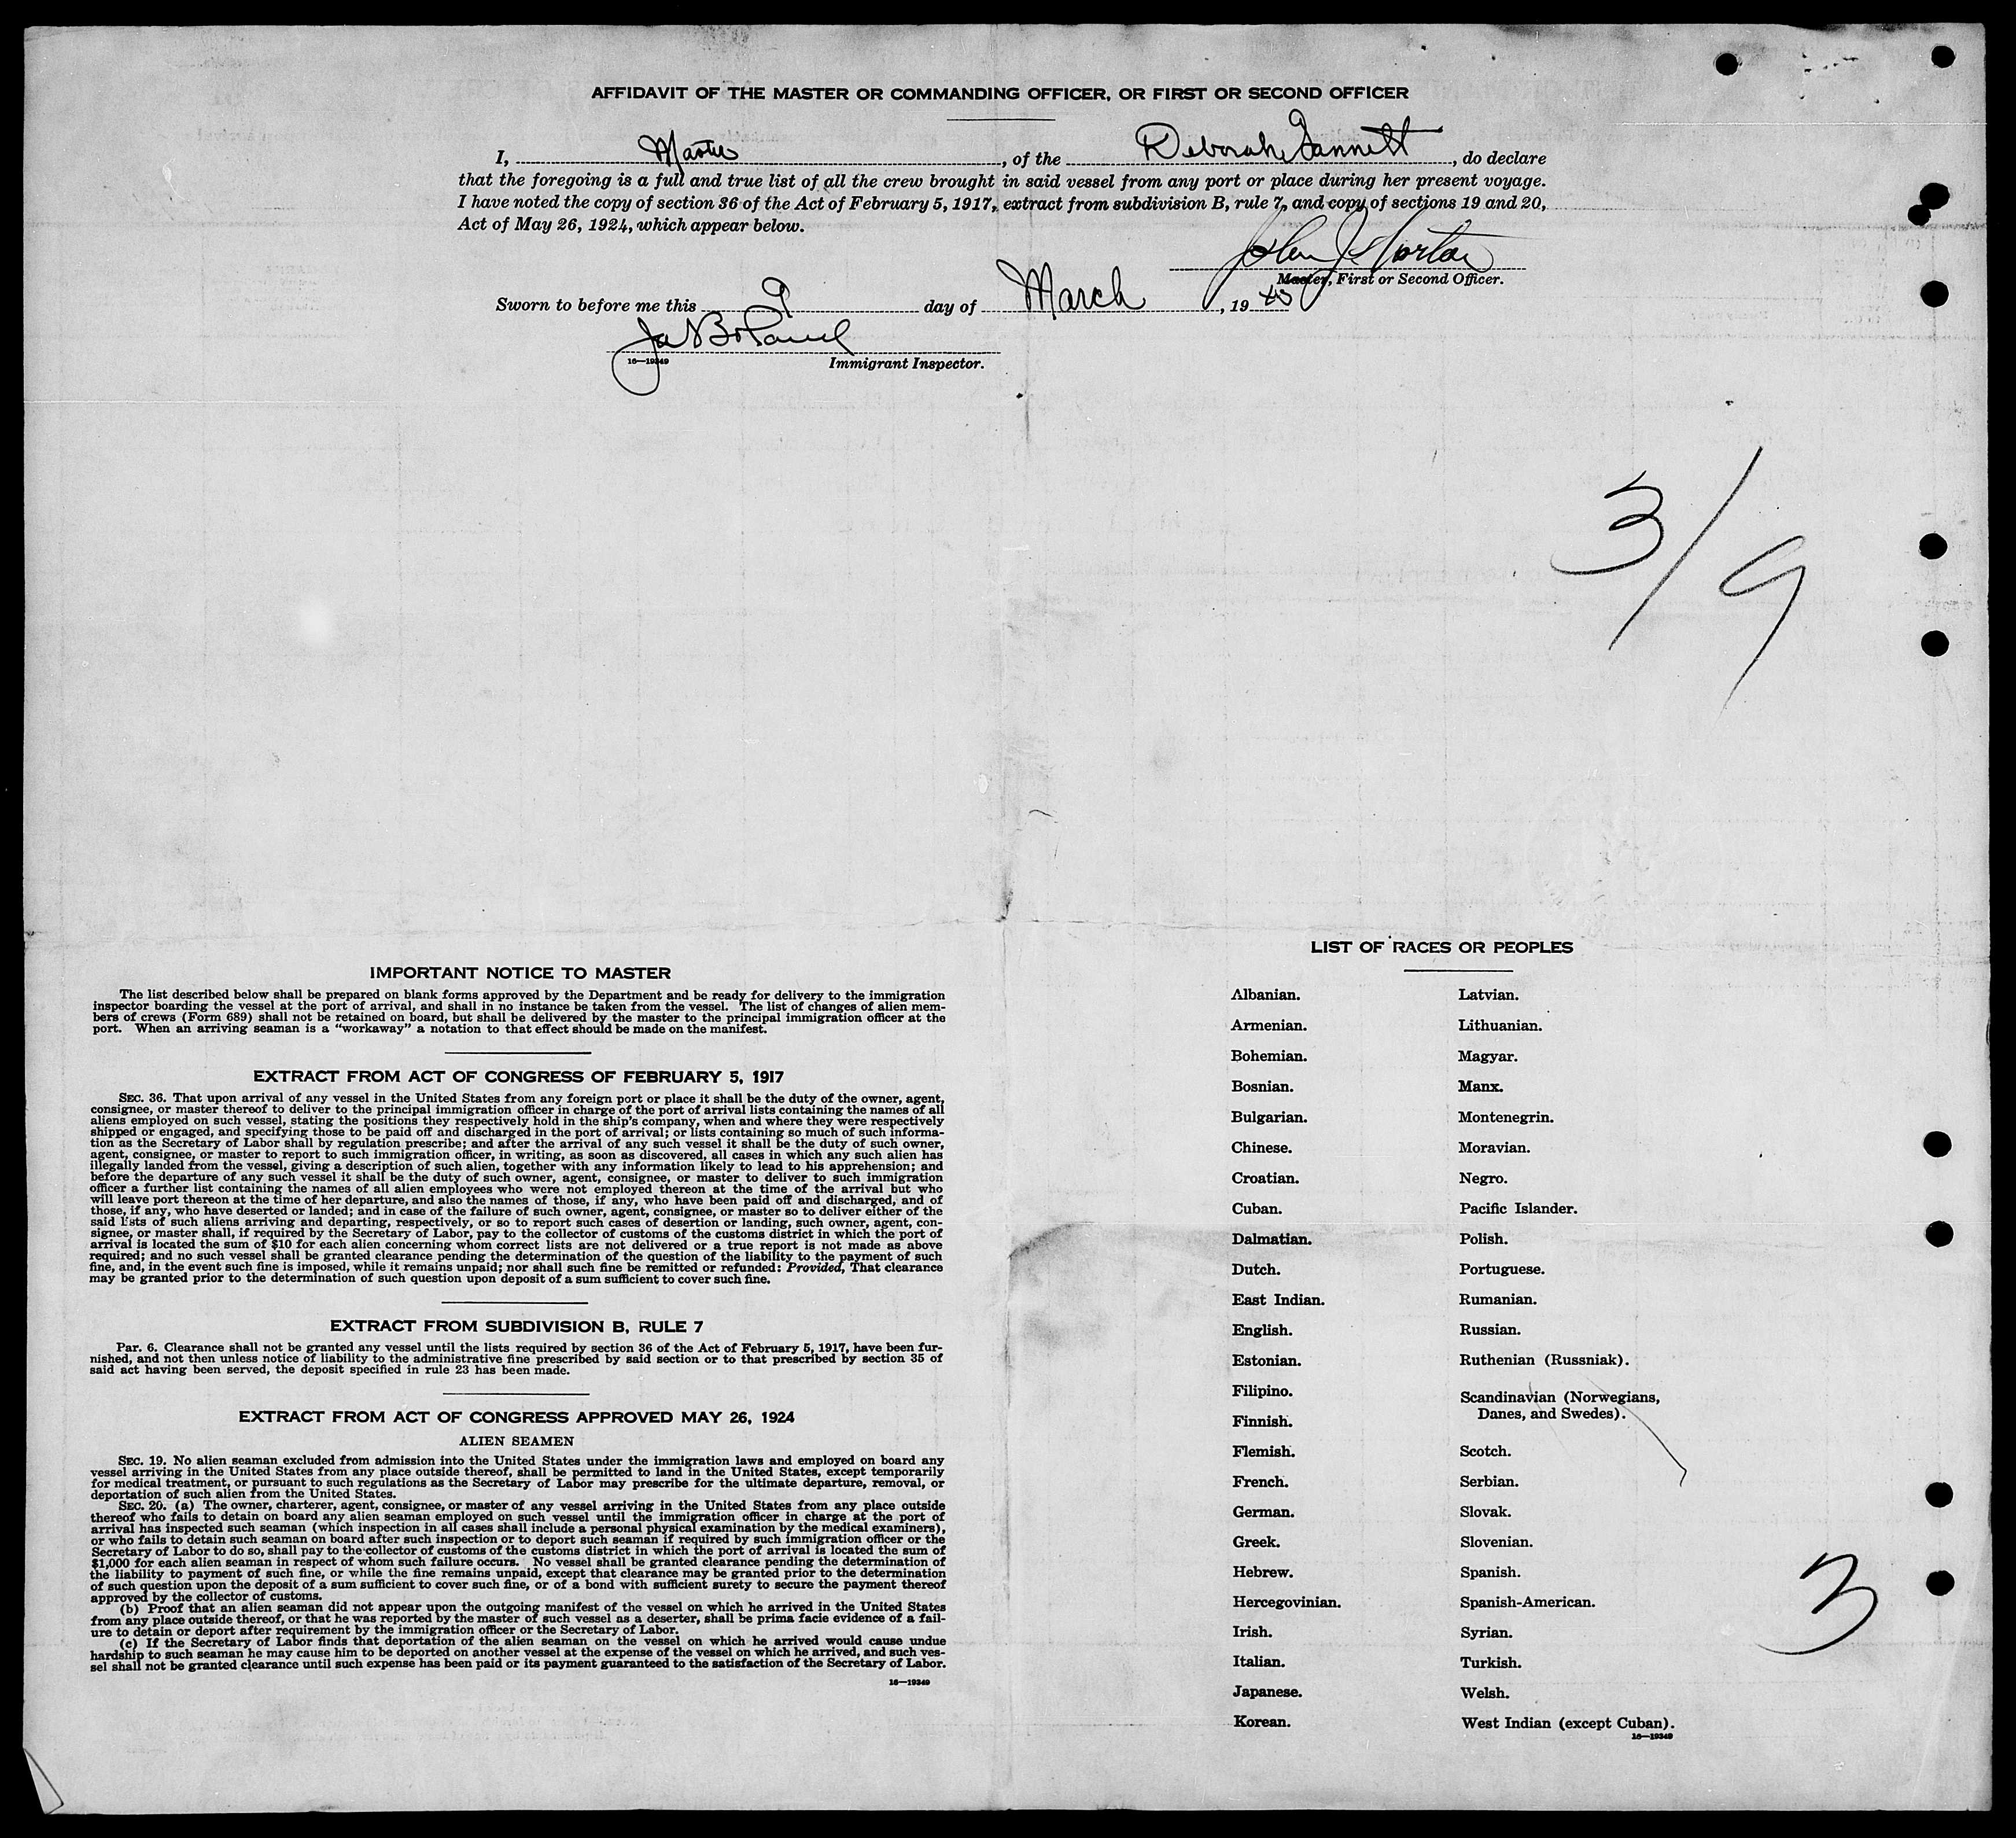 AFFIDAVIT OF THE MASTER OR COMMANDING OFFICER, OR FIRST OR SECOND OFFICER
I, Master, of the Deborah Gannett, do declare
that the foregoing is a full and true list of all the crew brought in said vessel from any port or place during her present voyage.
I have noted the copy of section 36 of the Act of February 5, 1917, extract from subdivision B, rule 7, and copy of sections 19 and 20,
Act of May 26, 1924, which appear below.
John J. Norton
Master, First or Second Officer.
Sworn to before me this 9 day of March, 19
16—19349
Immigrant Inspector.
3/9
IMPORTANT NOTICE TO MASTER
The list described below shall be prepared on blank forms approved by the Department and be ready for delivery to the immigration
inspector boarding the vessel at the port of arrival, and shall in no instance be taken from the vessel. The list of changes of alien mem-
bers of crews (Form 689) shall not be retained on board, but shall be delivered by the master to the principal immigration officer at the
port. When an arriving seaman is a "workaway" a notation to that effect should be made on the manifest.
EXTRACT FROM ACT OF CONGRESS OF FEBRUARY 5, 1917
SEC. 36. That upon arrival of any vessel in the United States from any foreign port or place it shall be the duty of the owner, agent,
consignee, or master thereof to deliver to the principal immigration officer in charge of the port of arrival lists containing the names of all
aliens employed on such vessel, stating the positions they respectively hold in the ship's company, when and where they were respectively
shipped or engaged, and specifying those to be paid off and discharged in the port of arrival; or lists containing so much of such informa-
tion as the Secretary of Labor shall by regulation prescribe; and after the arrival of any such vessel it shall be the duty of such owner,
agent, consignee, or master to report to such immigration officer, in writing, as soon as discovered, all cases in which any such alien has
illegally landed from the vessel, giving a description of such alien, together with any information likely to lead to his apprehension; and
before the departure of any such vessel it shall be the duty of such owner, agent, consignee, or master to deliver to such immigration
officer a further list containing the names of all alien employees who were not employed thereon at the time of the arrival but who
will leave port thereon at the time of her departure, and also the names of those, if any, who have been paid off and discharged, and of
those, if any, who have deserted or landed; and in case of the failure of such owner, agent, consignee, or master so to deliver either of the
said lists of such aliens arriving and departing, respectively, or so to report such cases of desertion or landing, such owner, agent, con-
signee, or master shall, if required by the Secretary of Labor, pay to the collector of customs of the customs district in which the port of
arrival is located the sum of $10 for each alien concerning whom correct lists are not delivered or a true report is not made as above
required; and no such vessel shall be granted clearance pending the determination of the question of the liability to the payment of such
fine, and, in the event such fine is imposed, while it remains unpaid; nor shall such fine be remitted or refunded: Provided, That clearance
may be granted prior to the determination of such question upon deposit of a sum sufficient to cover such fine.
EXTRACT FROM SUBDIVISION B, RULE 7
Par. 6. Clearance shall not be granted any vessel until the lists required by section 36 of the Act of February 5, 1917, have been fur-
nished, and not then unless notice of liability to the administrative fine prescribed by said section or to that prescribed by section 35 of
said act having been served, the deposit specified in rule 23 has been made.
EXTRACT FROM ACT OF CONGRESS APPROVED MAY 26, 1924
ALIEN SEAMEN
SEC. 19. No alien seaman excluded from admission into the United States under the immigration laws and employed on board any
vessel arriving in the United States from any place outside thereof, shall be permitted to land in the United States, except temporarily
for medical treatment, or pursuant to such regulations as the Secretary of Labor may prescribe for the ultimate departure, removal, or
deportation of such alien from the United States.
SEC. 20. (a) The owner, charterer, agent, consignee, or master of any vessel arriving in the United States from any place outside
thereof who fails to detain on board any alien seaman employed on such vessel until the immigration officer in charge at the port of
arrival has inspected such seaman (which inspection in all cases shall include a personal physical examination by the medical examiners),
or who fails to detain such seaman on board after such inspection or to deport such seaman if required by such immigration officer or the
Secretary of Labor to do so, shall pay to the collector of customs of the customs district in which the port of arrival is located the sum of
$1,000 for each alien seaman in respect of whom such failure occurs. No vessel shall be granted clearance pending the determination of
the liability to payment of such fine, or while the fine remains unpaid, except that clearance may be granted prior to the determination
of such question upon the deposit of a sum sufficient to cover such fine, or of a bond with sufficient surety to secure the payment thereof
approved by the collector of customs.
(b) Proof that an alien seaman did not appear upon the outgoing manifest of the vessel on which he arrived in the United States
from any place outside thereof, or that he was reported by the master of such vessel as a deserter, shall be prima facie evidence of a fail-
ure to detain or deport after requirement by the immigration officer or the Secretary of Labor.
(c) If the Secretary of Labor finds that deportation of the alien seaman on the vessel on which he arrived would cause undue
hardship to such seaman he may cause him to be deported on another vessel at the expense of the vessel on which he arrived, and such ves-
sel shall not be granted clearance until such expense has been paid or its payment guaranteed to the satisfaction of the Secretary of Labor.
16—19349
LIST OF RACES OR PEOPLES
Albanian.
Armenian.
Bohemian.
Bosnian.
Bulgarian.
Chinese.
Croatian.
Cuban.
Dalmatian.
Dutch.
East Indian.
English.
Estonian.
Filipino.
Finnish.
Flemish.
French.
German.
Greek.
Hebrew.
Hercegovinian.
Irish.
Italian.
Japanese.
Korean.
Latvian.
Lithuanian.
Magyar.
Manx.
Montenegrin.
Moravian.
Negro.
Pacific Islander.
Polish.
Portuguese.
Rumanian.
Russian.
Ruthenian (Russniak).
Scandinavian (Norwegians,
Danes, and Swedes).
Scotch.
Serbian.
Slovak.
Slovenian.
Spanish.
Spanish-American.
Syrian.
Turkish.
Welsh.
West Indian (except Cuban).
16—19349
3